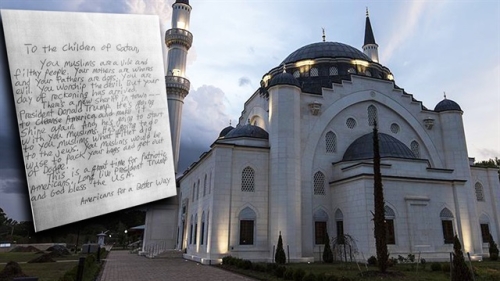 To the children of Satan,
You Muslims are a vile and
filthy people. Your mothers are whores
and your fathers are dogs. You are
evil. You worship the devil. But your
day of reckoning has arrived.
There's a new sheriff in town -
President Donald Trump. He's going
to cleanse America and make it
shine again. And, he's going to start
with you Muslims. He's going to do
to you Muslims what Hitler did
to the Jews. You Muslims would be
wise to pack your bags and get out
of Dodge.
This is a great time for patriotic
Americans. Long live President Trump
and God bless the USA.
Americans for a Better Way